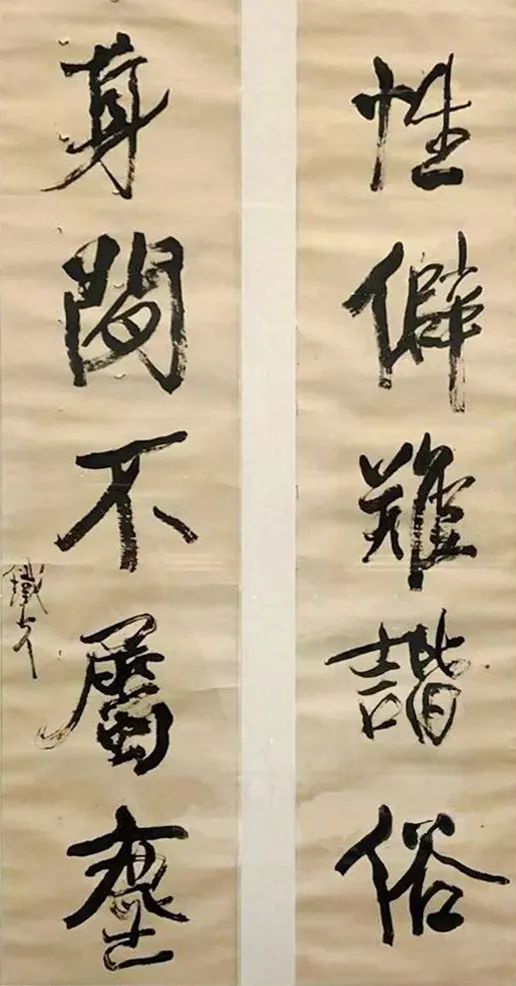 性僻難諧俗
身閒不屬塵
鐵生